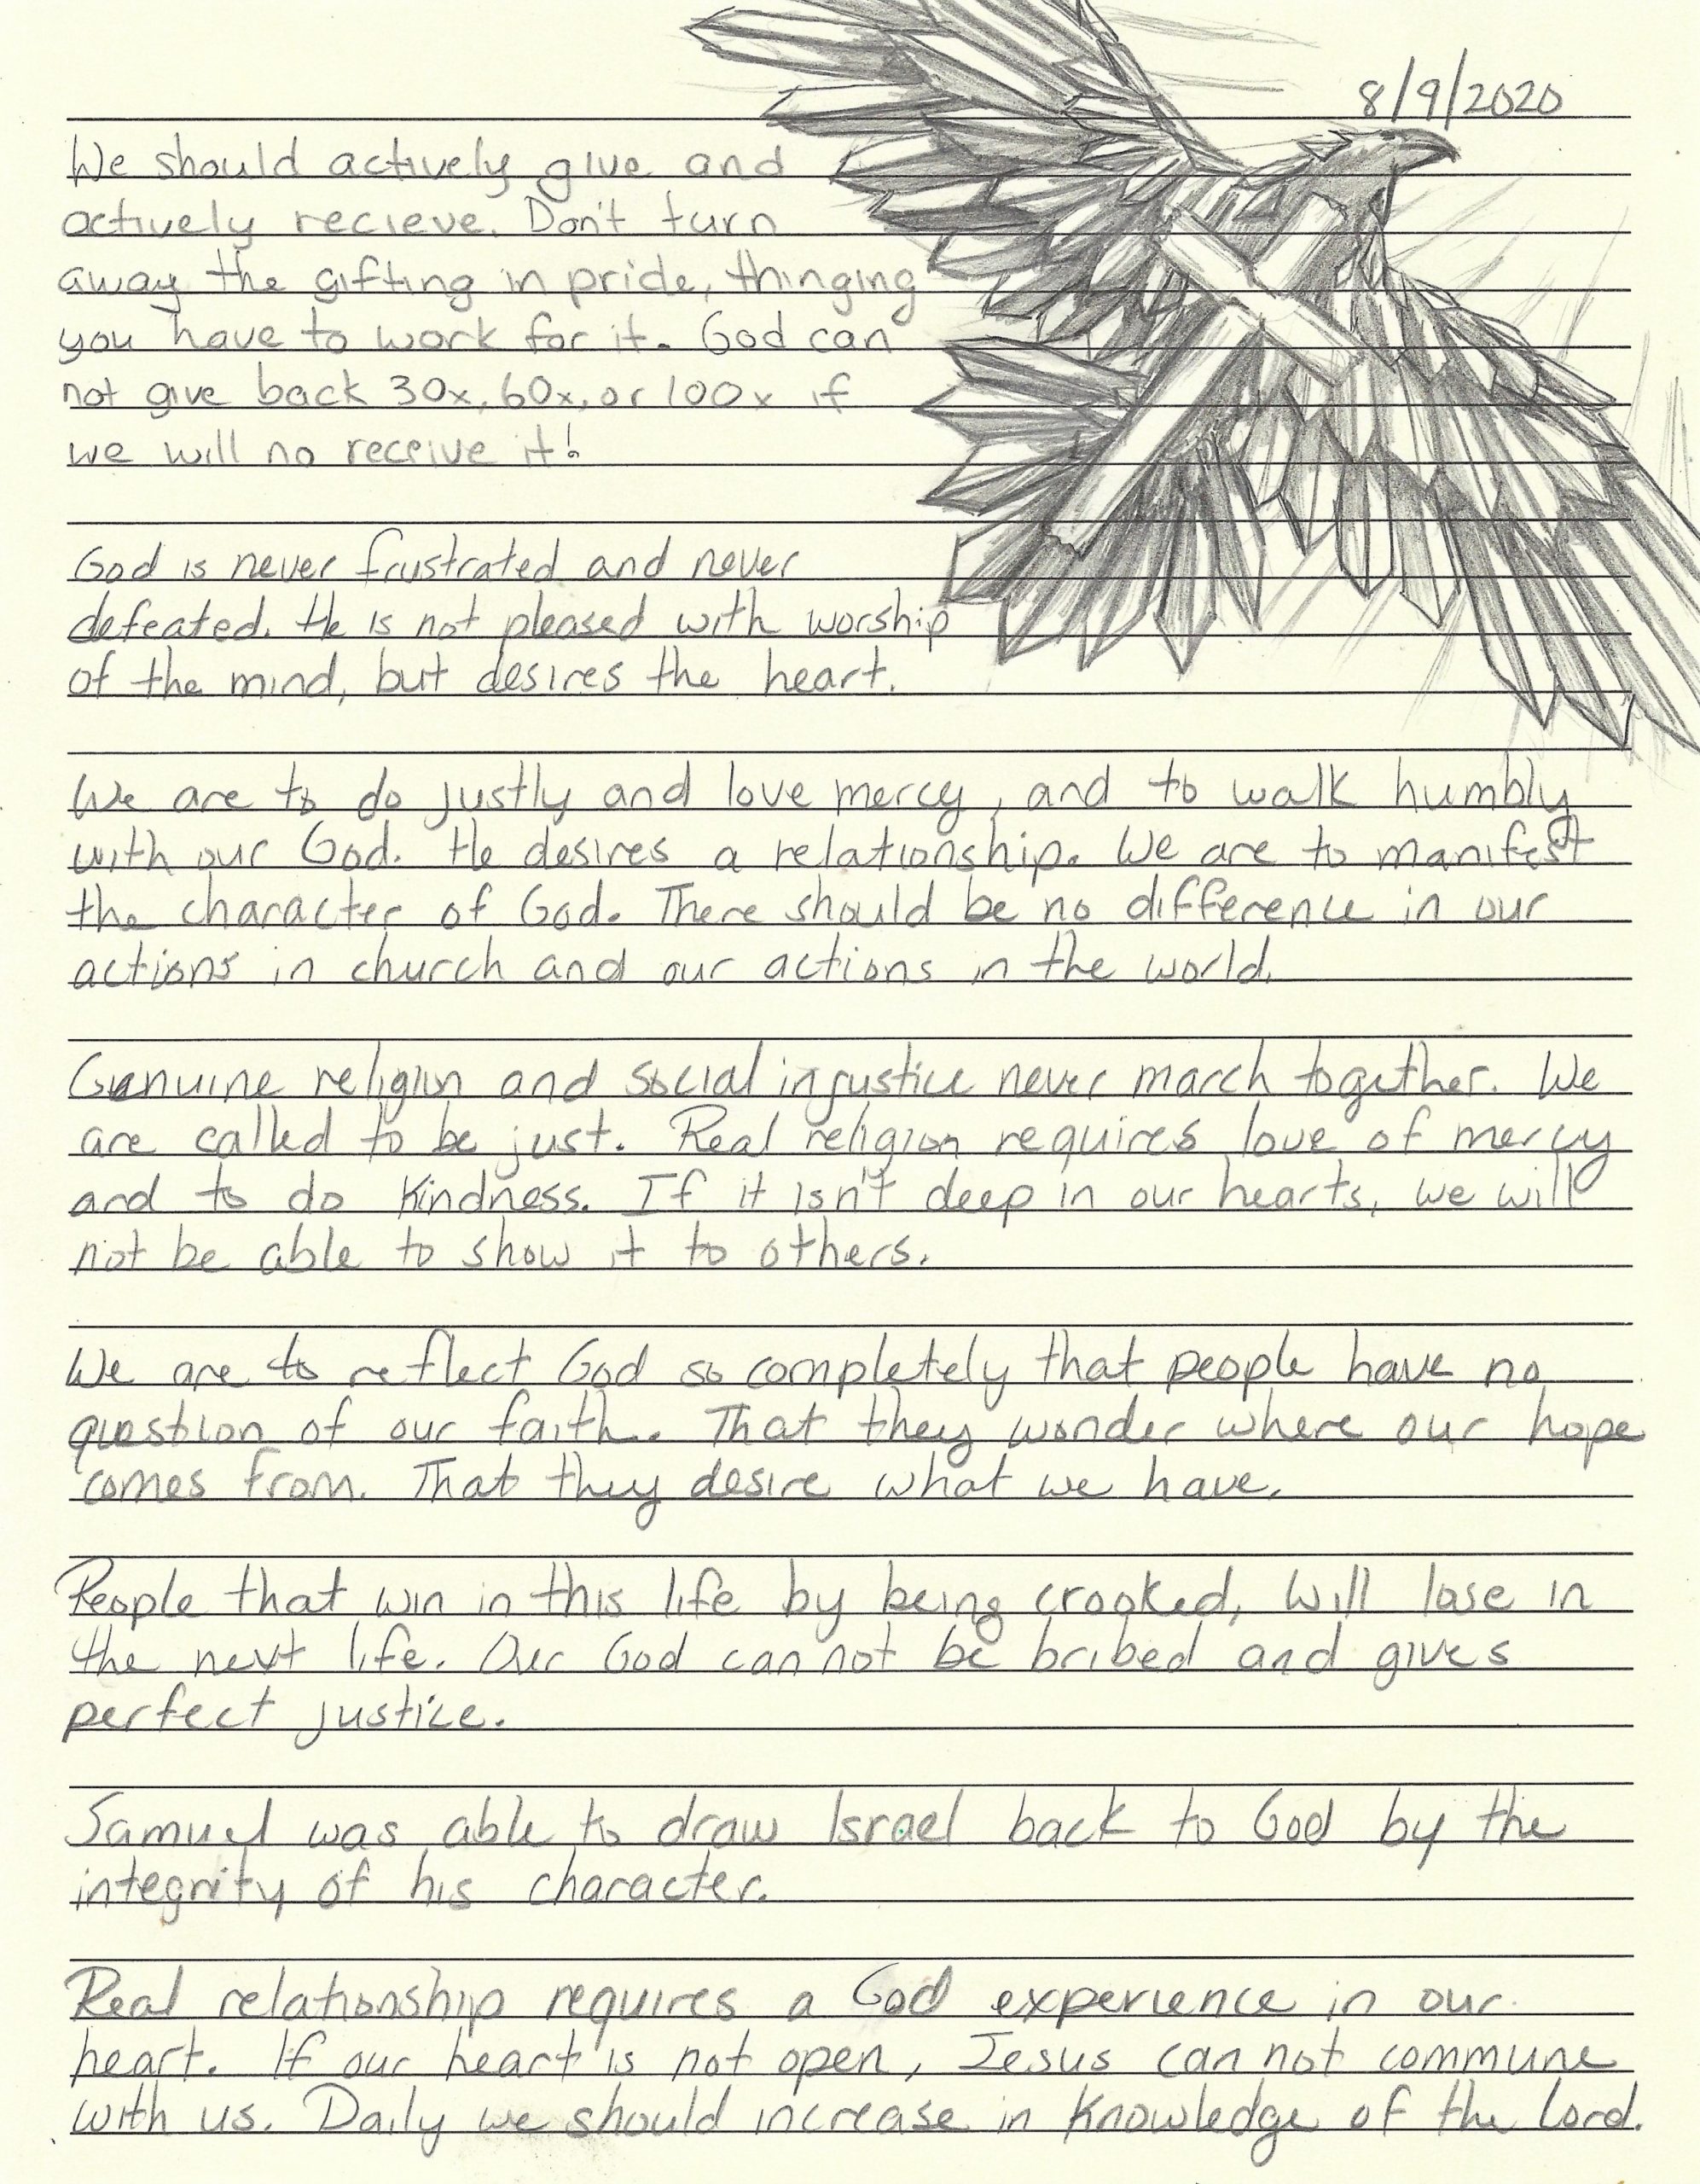 8/9/2020
We should actively give and
actively recieve. Don't turn
away the gifting in pride, thinging
you have to work for it. God can
not give back 30x, 60x, or 100x if
we will no receive it!
God is never frustrated and never
defeated. He is not pleased with worship
of the mind, but desires the heart.
We are to do justly and love mercy, and to walk humbly
with our God. He desires a relationship. We are to manifest
the character of God. There should be no difference in our
actions in church and our actions in the world.
Genuine religion and social injustice never march together. We
are called to be just. Real religion requires love of mercy
and to do kindness. If it isn't deep in our hearts, we will
not be able to show it to others.
We are to reflect God so completely that people have no
question of our faith. That they wonder where our hope
comes from. That they desire what we have.
People that win in this life by being crooked, will lose in
the next life. Our God can not be bribed and gives
perfect justice.
Samuel was able to draw Israel back to God by the
integrity of his character.
Real relationship requires a God experience in our
heart. If our heart is not open, Jesus can not commune
with us. Daily we should increase in knowledge of the Lord.